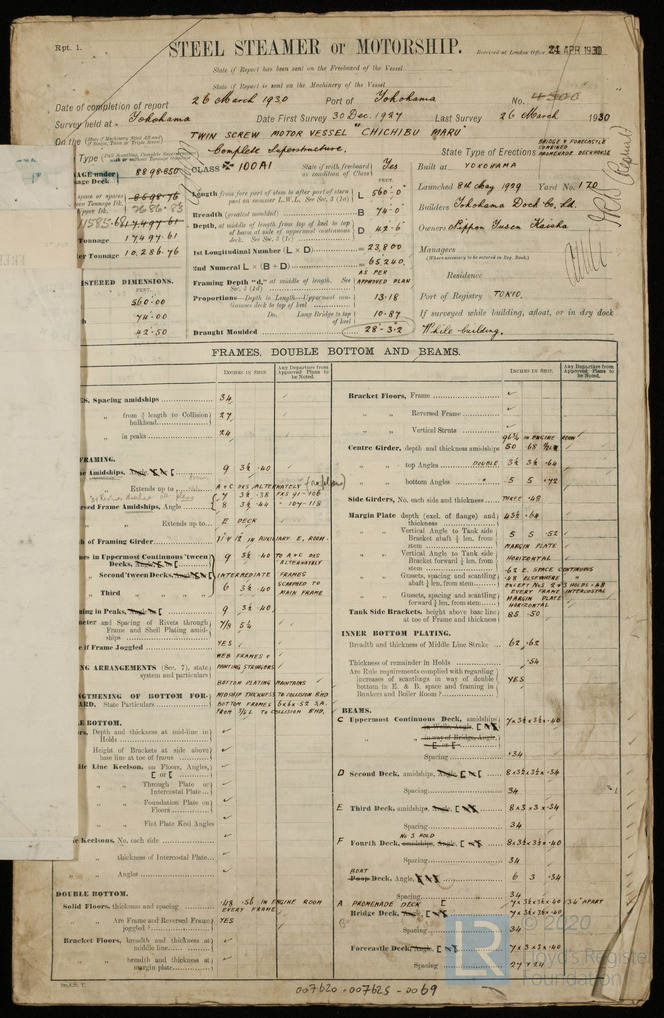 Rpt. 1.
STEEL STEAMER or MOTORSHIP.
Received at London Office 24 APR 1930
State if Report has been sent on the Freeboard of the Vessel
State if Report is sent on the Machinery of the Vessel
Date of completion of report 26 March 1930 Port of Yokohama No. 4300
Survey held at Yokohama Date First Survey 30 Dec. 1927 Last Survey 26 March 1930
On the TWIN SCREW MOTOR VESSEL "CHICHIBU MARU"
Type Complete Superstructure. State Type of Erections BRIDGE & FORECASTLE COMBINED PROMENADE DECKHOUSE
8898.850 CLASS 100A1 State if with freeboard as condition of Class Yes
Built at YOKOHAMA
Launched 8th May 1929 Yard No. 170
Builders Yokohama Dock Co. Ld.
Owners Nippon Yusen Kaisha
Managers
(Where necessary to be entered in Reg. Book)
Residence
Port of Registry TOKIO.
If surveyed while building, afloat, or in dry dock
While building.
Length from fore part of stem to after part of stern post on summer L.W.L. See Sec. 3 (1a) L 560.0
Breadth (greatest moulded) B 74.0
Depth, at middle of length from top of keel to top of beam at side of uppermost continuous deck. See Sec. 3 (1c) D 42.6
1st Longitudinal Number (L × D) = 23,800
2nd Numeral L × (B + D) = 65,240
Framing Depth "d," at middle of length. See Sec. 3 (1d) AS PER APPROVED PLAN
Proportions—Depth to Length—Uppermost continuous deck to top of keel 13.18
Do. Long Bridge to top of keel 10.87
Draught Moulded 28-3.2
17497.61
Tonnage 17,497.61
er Tonnage 10,286.76
ISTERED DIMENSIONS.
FEET.
560.00
74.00
42.50
FRAMES, DOUBLE BOTTOM AND BEAMS.
INCHES IN SHIP. Any Departure from Approved Plans to be Noted.
ES, Spacing amidships 34
" from 3/5 length to Collision bulkhead 27
" in peaks 24
FRAMING.
Amidships, Angle 9 3½ .40
Extends up to A & C DKS ALTERNATELY
7 3½ .38 FRS 91-106
rsed Frame Amidships, Angle 8 3½ .44 - 107-118
Extends up to E DECK
th of Framing Girder 11 & 12 IN AUXILIARY E. ROOM.
nes in Uppermost Continuous 'tween Decks, Angle 9 3½ .40 TO A & C DKS ALTERNATELY
" Second 'tween Decks, Angle INTERMEDIATE FRAMES
" Third " 6 3½ .40 SCARPED TO MAIN FRAME
ming in Peaks, Angle 9 3½ .40
meter and Spacing of Rivets through Frame and Shell Plating amidships 7/8 5¼
e if Frame Joggled YES
WEB FRAMES &
NG ARRANGEMENTS (Sec. 7), state system and particulars PANTING STRINGERS
BOTTOM PLATING MAINTAINS
GTHENING OF BOTTOM FORWARD. State Particulars MIDSHIP THICKNESS TO COLLISION BHD
BOTTOM FRAMES 6x6x.52 S.A.
FROM 3/5 L TO COLLISION BHD.
LE BOTTOM.
rs, Depth and thickness at mid-line in Holds
Height of Brackets at side above base line at toe of frame
dle Line Keelson, on Floors, Angles, [ or [
" " Through Plate or Intercostal Plate
" " Foundation Plate on Floors
" " Flat Plate Keel Angles
e Keelsons, No. each side
" thickness of Intercostal Plate
" Angles
DOUBLE BOTTOM.
Solid Floors, thickness and spacing .48 .56 IN ENGINE ROOM
EVERY FRAME
" " Are Frame and Reversed Frame joggled? YES
Bracket Floors, breadth and thickness at middle line
" " breadth and thickness at margin plate
Bracket Floors, Frame
" " Reversed Frame
" " Vertical Struts
96¼ IN ENGINE ROOM
Centre Girder, depth and thickness amidships 50 .68
" " top Angles DOUBLE 3½ 3½ .64
" " bottom Angles " 5 5 .72
Side Girders, No. each side and thickness THREE .48
Margin Plate depth (excl. of flange) and thickness 43½ .64
" " Vertical Angle to Tank Side Bracket abaft ¼ len. from stem 5 5 .52
" " Vertical Angle to Tank Side Bracket forward ¼ len. from stem MARGIN PLATE HORIZONTAL
" " Gussets, spacing and scantling abaft ¼ len. from stem .62 E. SPACE CONTINUOUS
.48 ELSEWHERE "
EXCEPT Nos 2 & 3 HOLDS .48
" " Gussets, spacing and scantling forward ¼ len. from stem EVERY FRAME INTERCOSTAL
MARGIN PLATE HORIZONTAL
Tank Side Brackets, height above base line at toe of Frame and thickness 85 .50
INNER BOTTOM PLATING.
Breadth and thickness of Middle Line Strake 62 .62
Thickness of remainder in Holds .54
Are Rule requirements complied with regarding increases of scantlings in way of double bottom in E. & B. space and framing in Bunkers and Boiler Room? YES
BEAMS.
C Uppermost Continuous Deck, amidships 7 x 3½ x 3½ x .40
in Wells, Angle, [
" " in way of Bridge, Angle, [ or [
Spacing 34
D Second Deck, amidships, Angle, [ 8 x 3½ x 3½ x .34
Spacing 34
E Third Deck, amidships, Angle, [ 8 x 3 x 3 x .34
Spacing 34
No 3 HOLD
F Fourth Deck, amidships, Angle, [ 8 x 3½ x 3½ x .40
Spacing 34
BOAT
Poop Deck, Angle, [ 6 3 .34
Spacing 34
A PROMENADE DECK [ 7 x 3½ x 3½ x .40 34" APART
B Bridge Deck, Angle, [ 7 x 3½ x 3½ x .40
Spacing 34
Forecastle Deck, Angle, [ 7 x 3 x 3 x .40
Spacing 27 & 24
© 2020
Lloyd's Register
Foundation
LR
007620-007625-0069